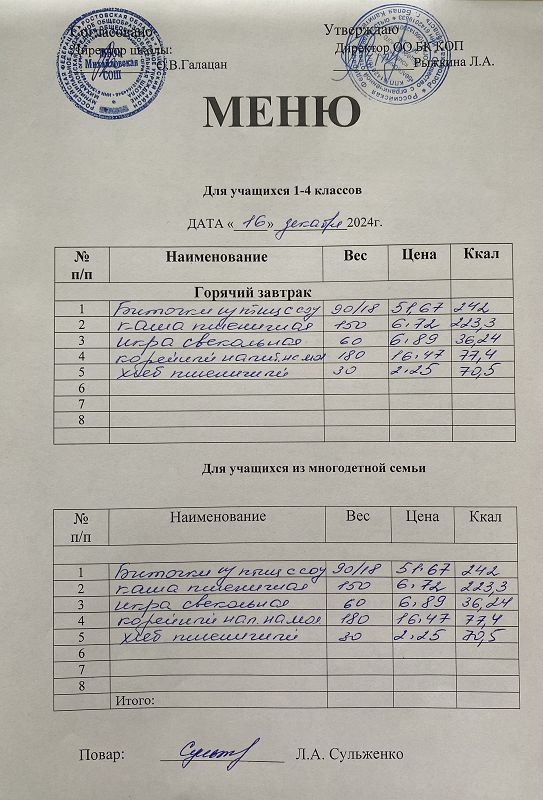 Согласовано Утверждаю
Директор школы: Директор ООО БК КОП
О.В.Галацан Рыжкина Л.А.
Михайловская
СОШ
МЕНЮ
Для учащихся 1-4 классов
ДАТА « 16 » декабря 2024г.
№ п/п Наименование Вес Цена Ккал
Горячий завтрак
1 Биточки из птиц с соу 90/18 51,67 242
2 каша пшеничная 150 6,72 223,3
3 икра свекольная 60 6,89 36,24
4 кофейный напит. на мол 180 16,47 77,4
5 хлеб пшеничный 30 2,25 70,5
6
7
8
Для учащихся из многодетной семьи
№ п/п Наименование Вес Цена Ккал
1 Биточки из птиц с соу 90/18 51,67 242
2 каша пшеничная 150 6,72 223,3
3 икра свекольная 60 6,89 36,24
4 кофейный нап. на мол 180 16,47 77,4
5 хлеб пшеничный 30 2,25 70,5
6
7
8
Итого:
Повар: Л.А. Сульженко